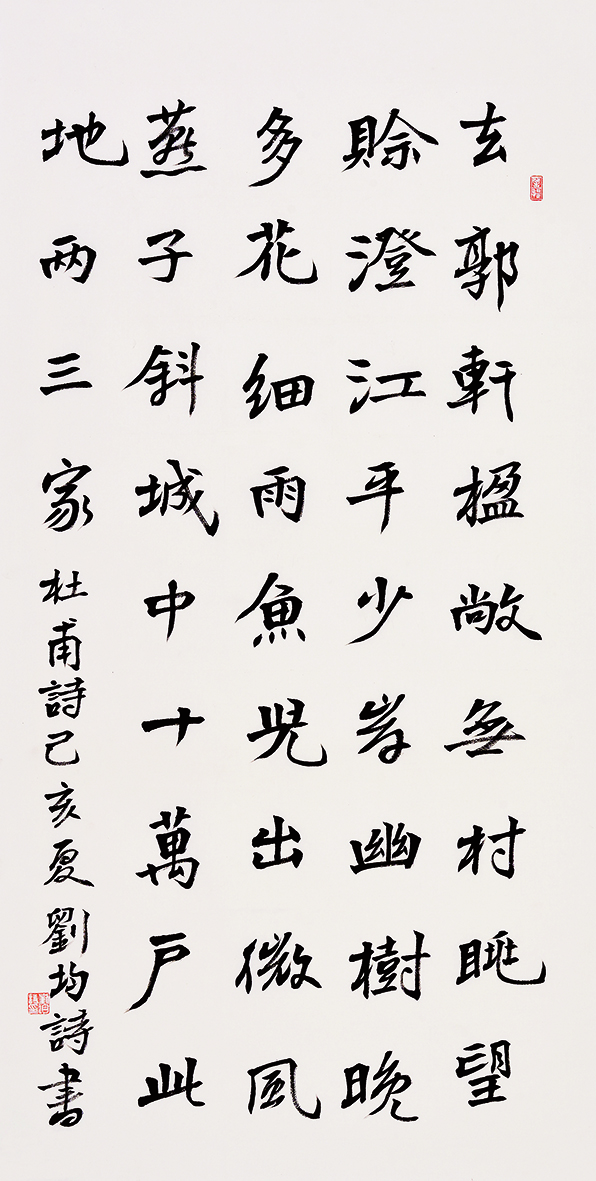 去郭軒楹敞無村眺望
賒澄江平少岸幽樹晚
多花細雨魚兒出微風
燕子斜城中十萬戶此
地兩三家杜甫詩己亥夏劉均詩書